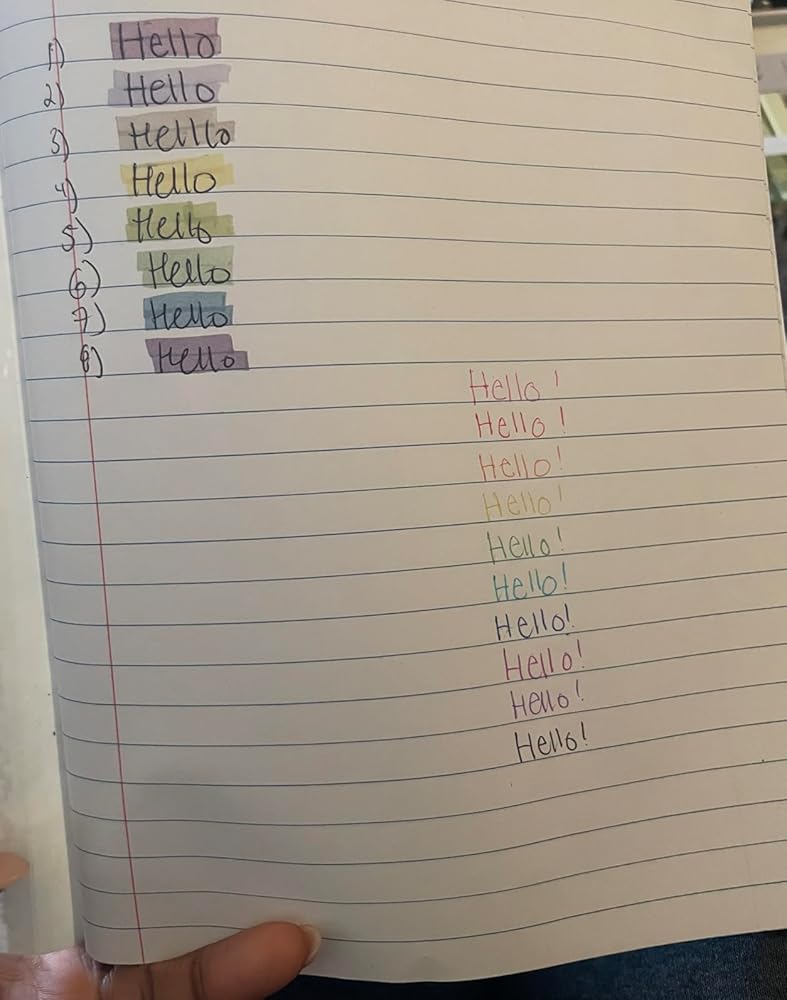 1) Hello
2) Hello
3) Helllo
4) Hello
5) Hello
6) Hello
7) Hello
8) Hello
Hello !
Hello !
Hello!
Hello!
Hello!
Hello!
Hello!
Hello!
Hello!
Hello!